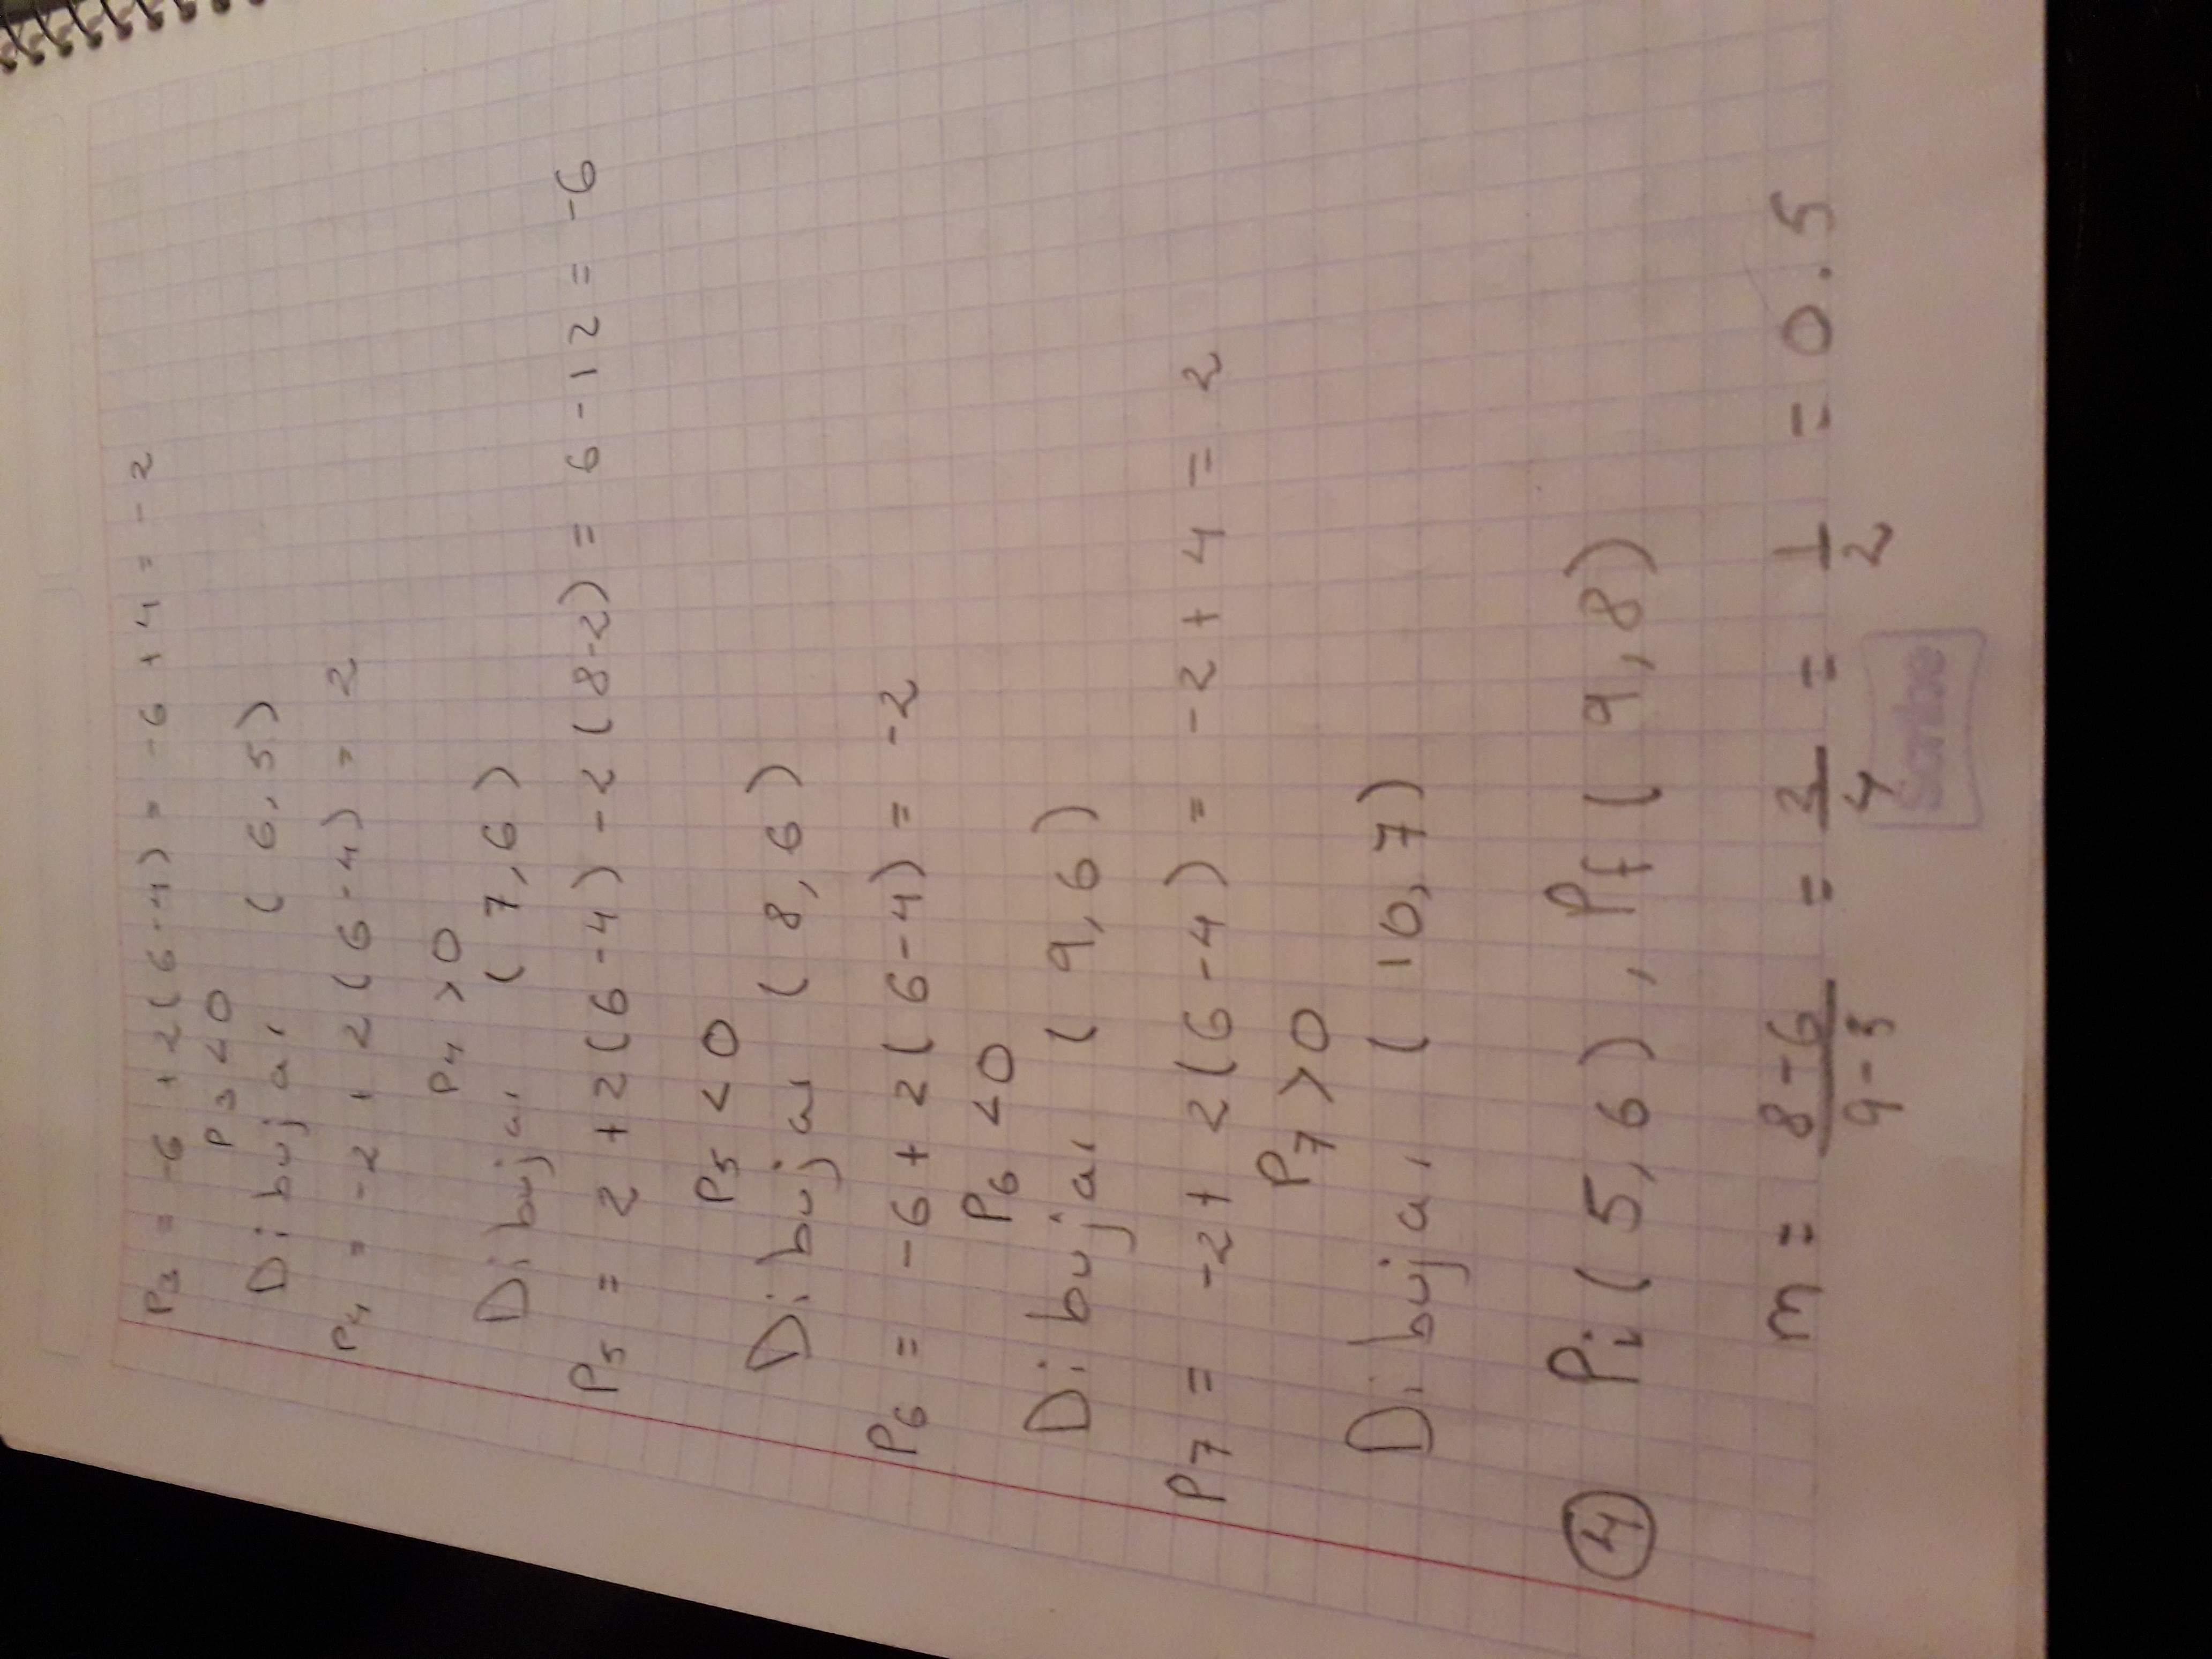 P3 = -6 + 2(6-4) = -6 + 4 = -2
P3 < 0
Dibujar (6,5)
P4 = -2 + 2(6-4) = 2
P4 > 0
Dibujar (7,6)
P5 = 2 + 2(6-4) - 2(8-2) = 6 - 12 = -6
P5 < 0
Dibujar (8,6)
P6 = -6 + 2(6-4) = -2
P6 < 0
Dibujar (9,6)
P7 = -2 + 2(6-4) = -2 + 4 = 2
P7 > 0
Dibujar (10,7)
4 Pi(5,6), Pf(9,8)
m = 8-6/9-5 = 2/4 = 1/2 = 0.5
Scribe